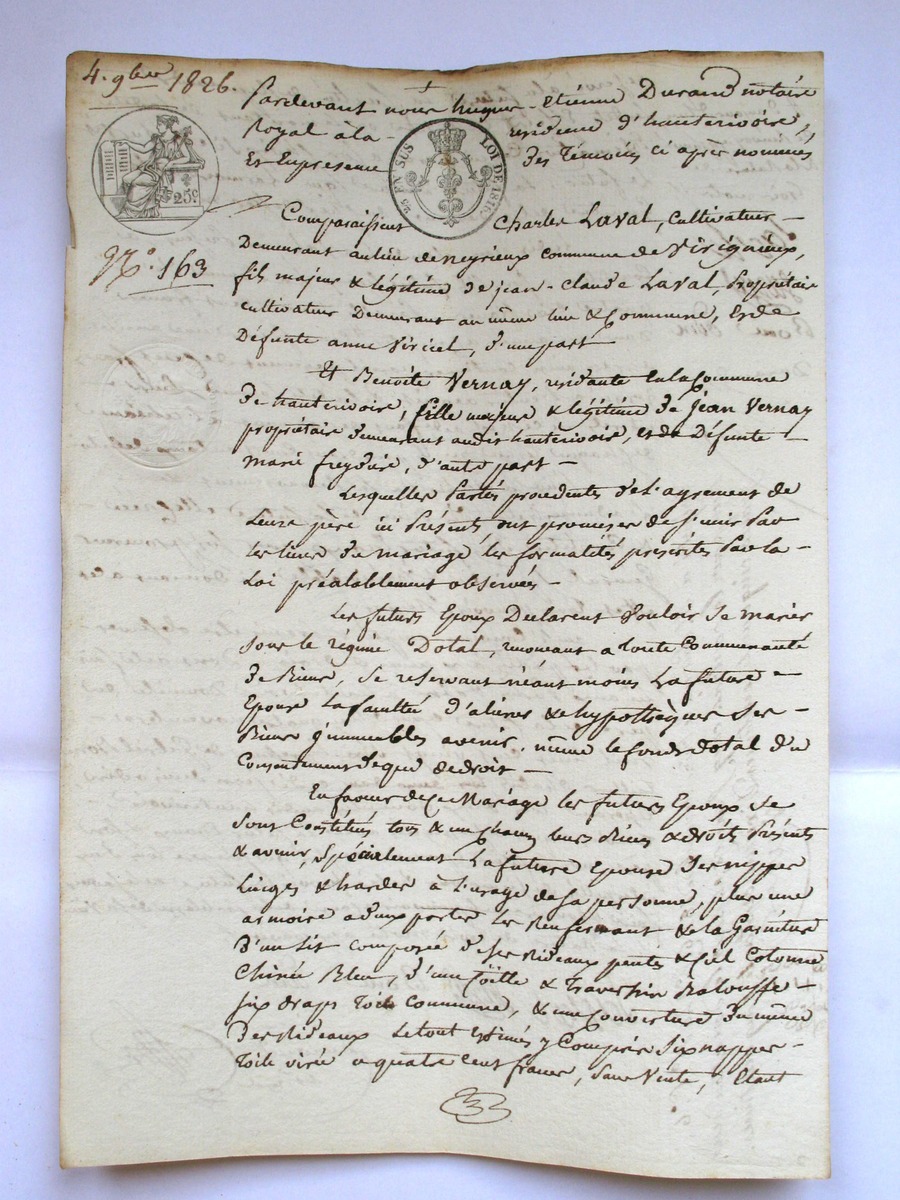 4. 9bre 1826.
Pardevant nous hugues-Etienne Durand notaire
Royal à la résidence d'hauterivoire,
Et En présence des Témoins ci après nommés
25c.
25 EN SUS LOI DE 1816.
Comparaissent Charles Laval, Cultivateur
Demeurant au lieu de neyrieux commune de Virigneux,
N°. 163
fils majeur & légitime de jean-Claude Laval, Propriétaire
cultivateur Demeurant au même lieu & Commune, et de
Défunte anne Viricel, d'une part
Et Benoite Vernay, residante en la Commune
De hauterivoire, fille majeure & légitime de Jean Vernay
propriétaire demeurant audit hauterivoire, et de Défunte
marie freydière, d'autre part
Lesquelles Parties procedentes de l'agrement de
Leurs père ici Présents ont promises de s'unir Par
les liens du mariage les formalités prescrites Par la
Loi préalablement observées
Les futurs Epoux Declarent Vouloir se marier
sous le régime Dotal, renonçant a toute Communauté
de Biens, se reservant néant moins La future
Epouse La faculté d'aliéner & hypothèquer ses
Biens immeubles avenir, même le fonds dotal Du
Consentement de que de droit
En faveur de Ce Mariage les futurs Epoux se
sont Constitués tous & un chacun leurs Biens & droits Présents
& avenir, Spécialement La future Epouse Ses nippes
Linges & hardes à l'usage de sa personne, plus une
armoire a deux portes les Renfermant & la Garniture
D'un Lit composée de ses Rideaux pentes & Ciel Cotonne
Chinée Bleu, d'une & Traversin Balouffe
six draps Toile Commune, & une Couverture du même
Des Rideaux Le tout Estimés y Compris Six nappes
Toile a quatre cent francs, sans Vente, Etant